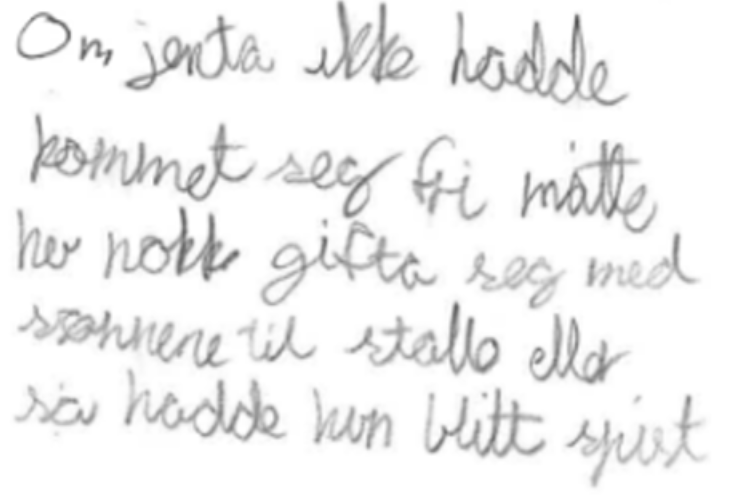 Om jenta ikke hadde
kommet seg fri måtte
hu nokk gifta seg med
sønnene til stallo eller
så hadde hun blitt spist